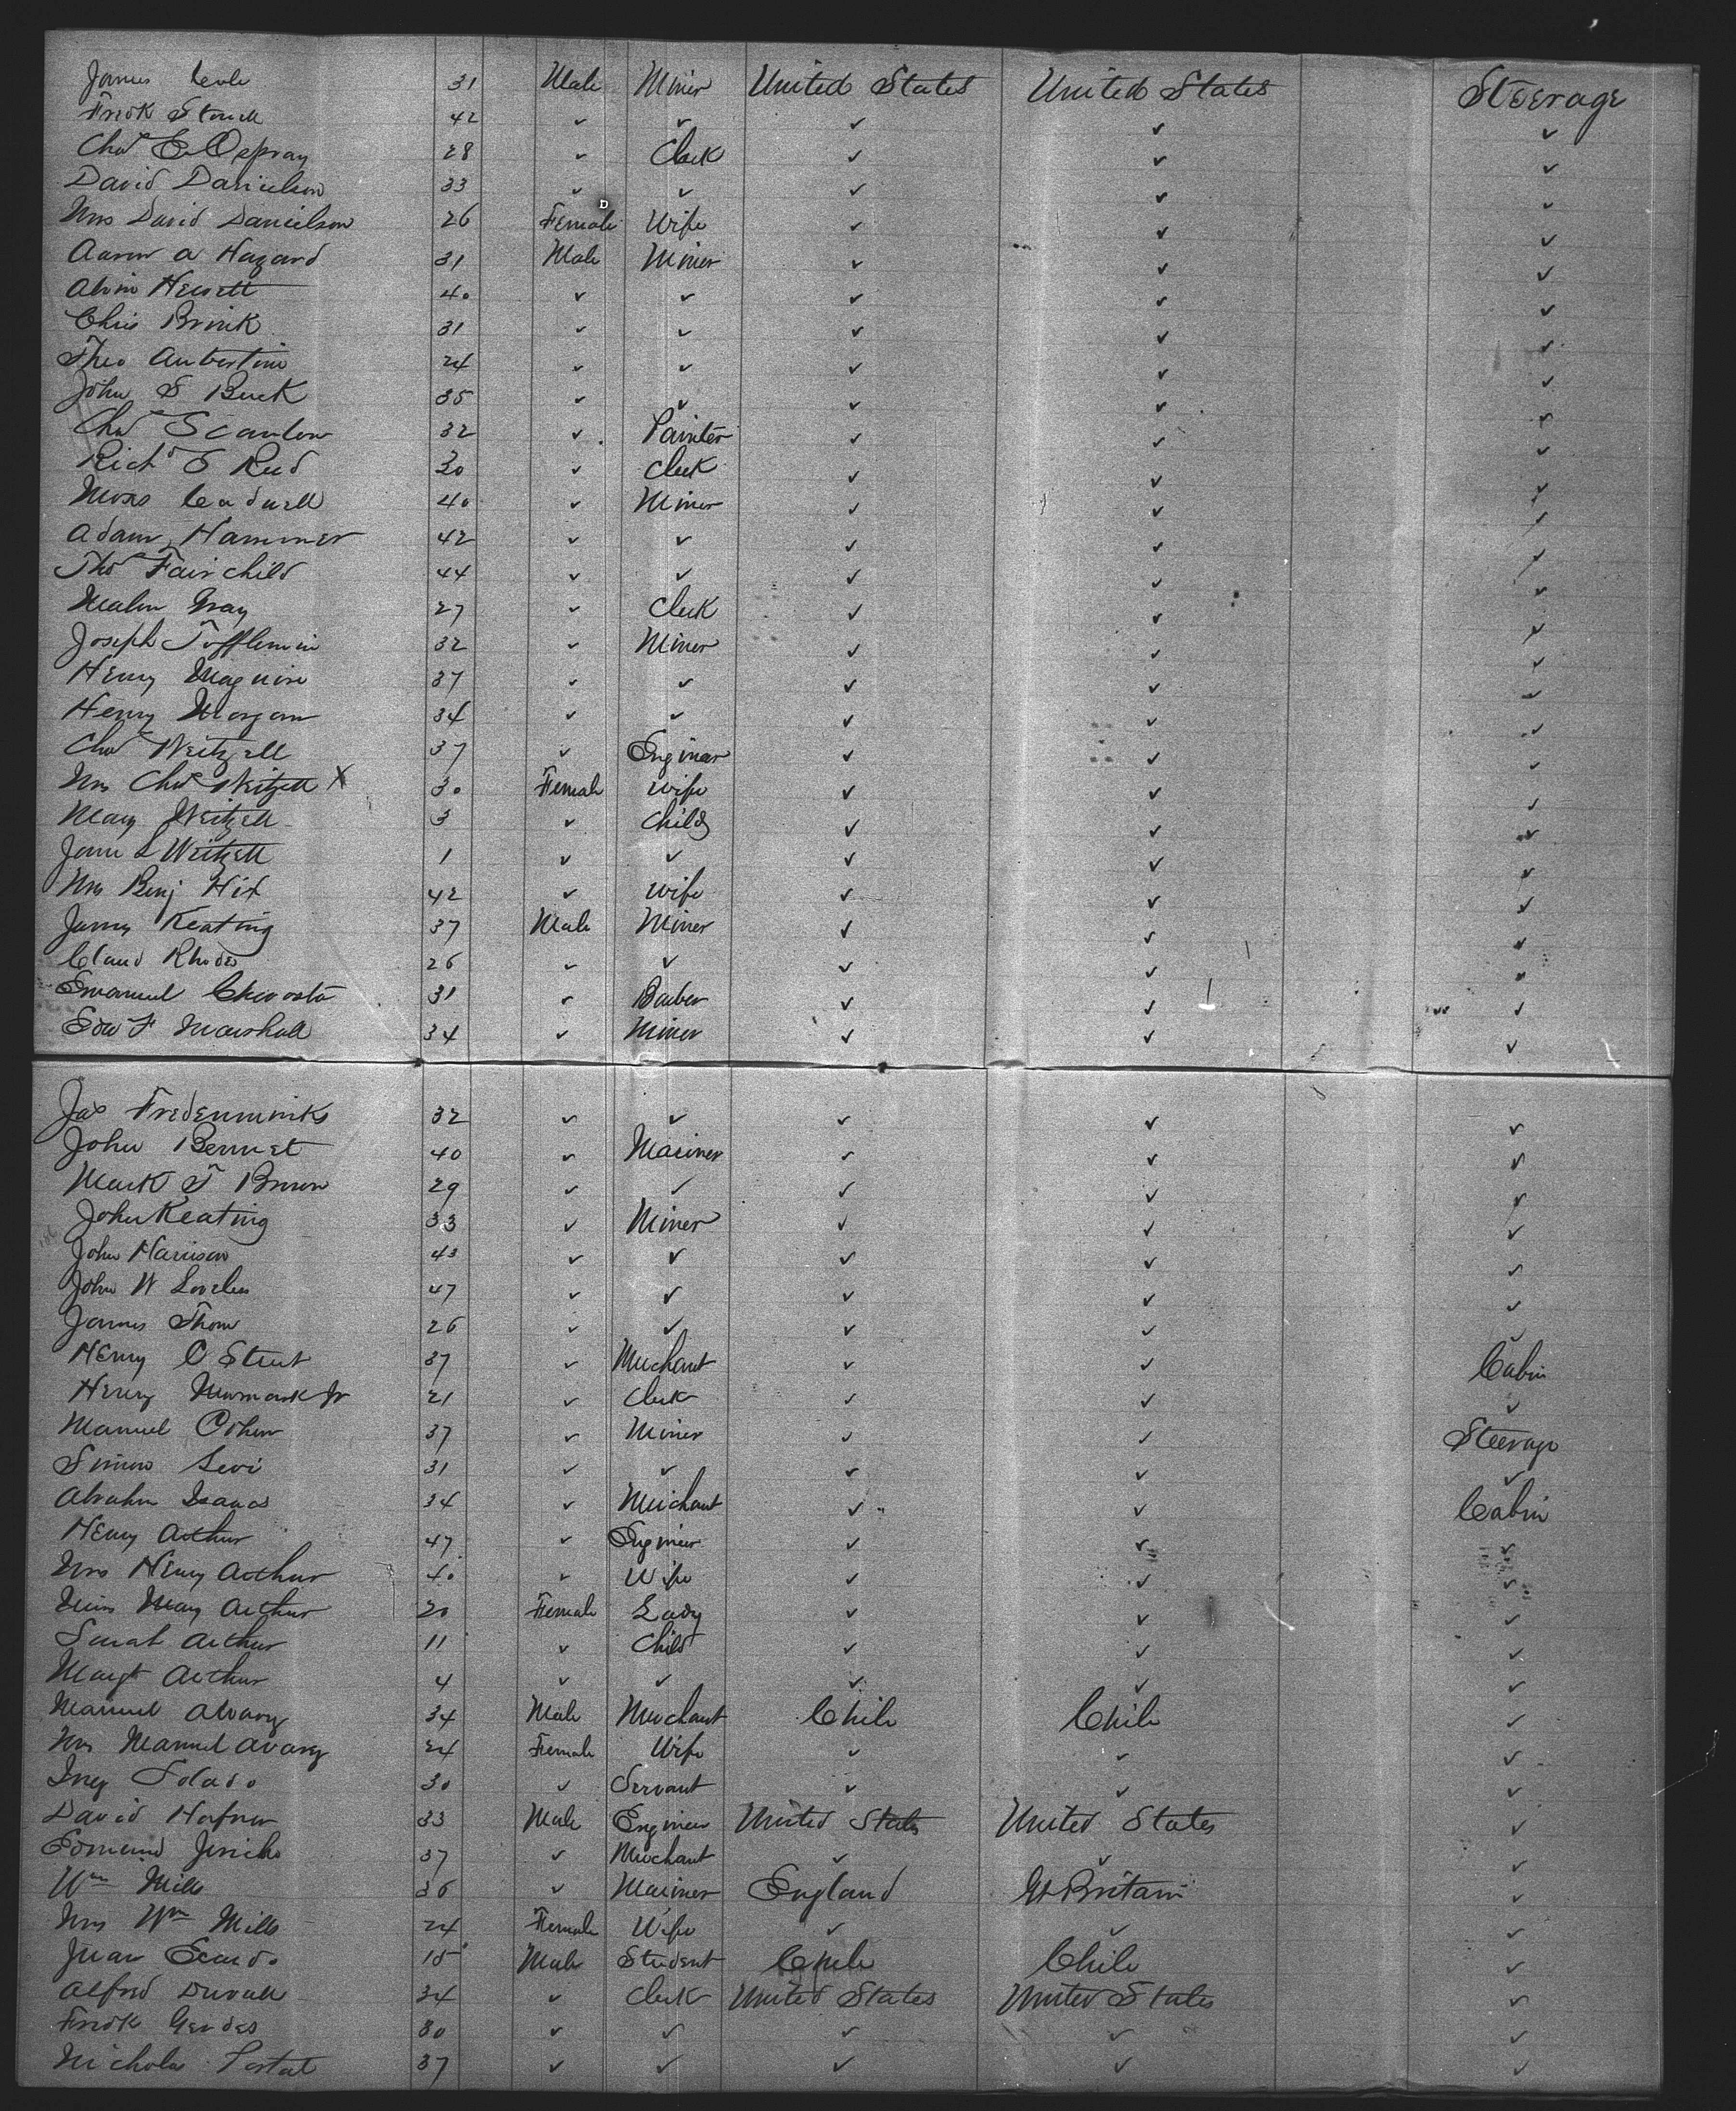 James 31 Male Miner United States United States Steerage
Fredk Stowell 42 ✓ ✓ ✓ ✓ ✓
Chas E 28 ✓ Clerk ✓ ✓ ✓
David Danielson 33 ✓ ✓ ✓ ✓ ✓
Mrs David Danielson 26 Female Wife ✓ ✓ ✓
Aaron A Hazard 31 Male Miner ✓ ✓ ✓
Alvin Hewett 40 ✓ ✓ ✓ ✓ ✓
Chris Brink 31 ✓ ✓ ✓ ✓ ✓
Theo Aubertine 24 ✓ ✓ ✓ ✓ ✓
John S Buck 35 ✓ ✓ ✓ ✓ ✓
Chas Scanlon 32 ✓ Painter ✓ ✓ ✓
Richd S Reed 30 ✓ Clerk ✓ ✓ ✓
Moses Cadwell 40 ✓ Miner ✓ ✓ ✓
Adam Hammer 42 ✓ ✓ ✓ ✓ ✓
Thos Fairchild 44 ✓ ✓ ✓ ✓ ✓
Gray 27 ✓ Clerk ✓ ✓ ✓
Joseph Tofflemire 32 ✓ Miner ✓ ✓ ✓
Henry Maguire 37 ✓ ✓ ✓ ✓ ✓
Henry Morgan 34 ✓ ✓ ✓ ✓ ✓
Chas Weitzell 37 ✓ Enginer ✓ ✓ ✓
Mrs Chas Weitzell X 30 Female Wife ✓ ✓ ✓
Mary Weitzell 3 ✓ Child ✓ ✓ ✓
Jane L Weitzell 1 ✓ ✓ ✓ ✓ ✓
Mrs Benj Hix 42 ✓ Wife ✓ ✓ ✓
James Keating 37 Male Miner ✓ ✓ ✓
Claud Rhodes 26 ✓ ✓ ✓ ✓ ✓
Emanuel 31 ✓ Barber ✓ ✓ ✓
Edw F Marshall 34 ✓ Miner ✓ ✓ ✓
Jas 32 ✓ ✓ ✓ ✓ ✓
John Bennet 40 ✓ Mariner ✓ ✓ ✓
Mark T Brown 29 ✓ ✓ ✓ ✓ ✓
John Keating 33 ✓ Miner ✓ ✓ ✓
John Harrison 43 ✓ ✓ ✓ ✓ ✓
John W Loveless 47 ✓ ✓ ✓ ✓ ✓
James Thom 26 ✓ ✓ ✓ ✓ ✓
Henry C Street 37 ✓ Merchant ✓ ✓ Cabin
Henry Newmark Jr 21 ✓ Clerk ✓ ✓ ✓
Manuel Cohen 37 ✓ Miner ✓ ✓ Steerage
Simon Levi 31 ✓ ✓ ✓ ✓ ✓
Abrahm Isaacs 34 ✓ Merchant ✓ ✓ Cabin
Henry Arthur 47 ✓ Engineer ✓ ✓ ✓
Mrs Henry Arthur 40 ✓ Wife ✓ ✓ ✓
Miss May Arthur 20 Female Lady ✓ ✓ ✓
Sarah Arthur 11 ✓ Child ✓ ✓ ✓
Margt Arthur 4 ✓ ✓ ✓ ✓ ✓
Manuel 34 Male Merchant Chile Chile ✓
Mrs Manuel 24 Female Wife ✓ ✓ ✓
30 ✓ Servant ✓ ✓ ✓
David Hafner 33 Male Engineer United States United States ✓
Edmund Jericho 37 ✓ Merchant ✓ ✓ ✓
Wm Mills 36 ✓ Mariner England Gt Britain ✓
Mrs Wm Mills 24 Female Wife ✓ ✓ ✓
Juan 15 Male Student Chile Chile ✓
Alfred Duvall 34 ✓ Clerk United States United States ✓
Fredk Gerdes 30 ✓ ✓ ✓ ✓ ✓
Nicholas Postal 37 ✓ ✓ ✓ ✓ ✓